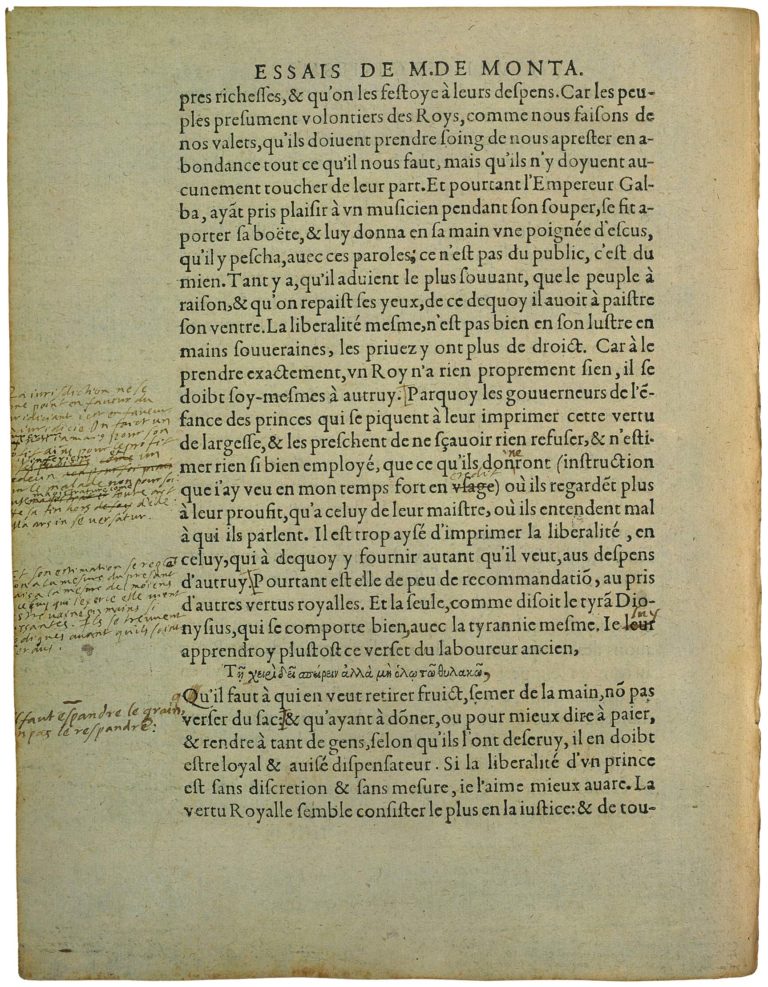 ESSAIS DE M.DE MONTA.
pres richeſſes, & qu'on les feſtoye à leurs deſpens. Car les peu-
ples preſument volontiers des Roys, comme nous faiſons de
nos valets, qu'ils doiuent prendre ſoing de nous apreſter en a-
bondance tout ce qu'il nous faut, mais qu'ils n'y doyuent au-
cunement toucher de leur part. Et pourtant l'Empereur Gal-
ba, ayãt pris plaiſir à vn muſicien pendant ſon ſouper, ſe fit a-
porter ſa boëte, & luy donna en ſa main vne poignée d'eſcus,
qu'il y peſcha, auec ces paroles; ce n'eſt pas du public, c'eſt du
mien. Tant y a, qu'il aduient le plus ſouuant, que le peuple à
raiſon, & qu'on repaiſt ſes yeux, de ce dequoy il auoit à paiſtre
ſon ventre. La liberalité meſme, n'eſt pas bien en ſon luſtre en
mains ſouueraines, les priuez y ont plus de droict. Car à le
prendre exactement, vn Roy n'a rien proprement ſien, il ſe
doibt ſoy-meſmes à autruy. Parquoy les gouuerneurs de l'ẽ-
fance des princes qui ſe piquent à leur imprimer cette vertu
de largeſſe, & les preſchent de ne ſçauoir rien refuſer, & n'eſti-
mer rien ſi bien employé, que ce qu'ils donront (inſtruction
que i'ay veu en mon temps fort en vſage) credit où ils regardẽt plus
à leur proufit, qu'a celuy de leur maiſtre, où ils entendent mal
à qui ils parlent. Il eſt trop ayſé d'imprimer la liberalité, en
celuy, qui à dequoy y fournir autant qu'il veut, aus deſpens
d'autruy. Pourtant eſt elle de peu de recommandatiõ, au pris
d'autres vertus royalles. Et la ſeule, comme diſoit le tyrã Dio-
nyſius, qui ſe comporte bien, auec la tyrannie meſme. Ie leur luy
apprendroy pluſtoſt ce verſet du laboureur ancien,
Τῇ χειρὶ δεῖ σπείρειν ἀλλὰ μὴ ὅλῳ τῷ θυλακῷ,
Qu'il faut à qui en veut retirer fruict, ſemer de la main, nõ pas
verſer du ſac: & qu'ayant à dõner, ou pour mieux dire à paier,
& rendre à tant de gens, ſelon qu'ils l'ont deſeruy, il en doibt
eſtre loyal & auiſé diſpenſateur. Si la liberalité d'vn prince
eſt ſans diſcretion & ſans meſure, ie l'aime mieux auare. La
vertu Royalle ſemble conſiſter le plus en la iuſtice: & de tou-
La iurisdiction ne se
ne point en faueur du
iuridiciant c'est en faueur
iuridicié On faict un
iamais pour son
profit ains pour le profit
de l'inferieur un
medecin
le malade non pour soi
toute art
te sa fin hors d'elle
nulla ars in se versatur.
Et son estimation se reglãt
non a la mesure du presant
mais a la mesure des moiens
ce qui l'exerce elle vient
estre vaine en mains si
puissantes. Ils se treuuent
prodigues auant qu'ils soint
liberaus.
il faut espandre le grain,
non pas le respandre: